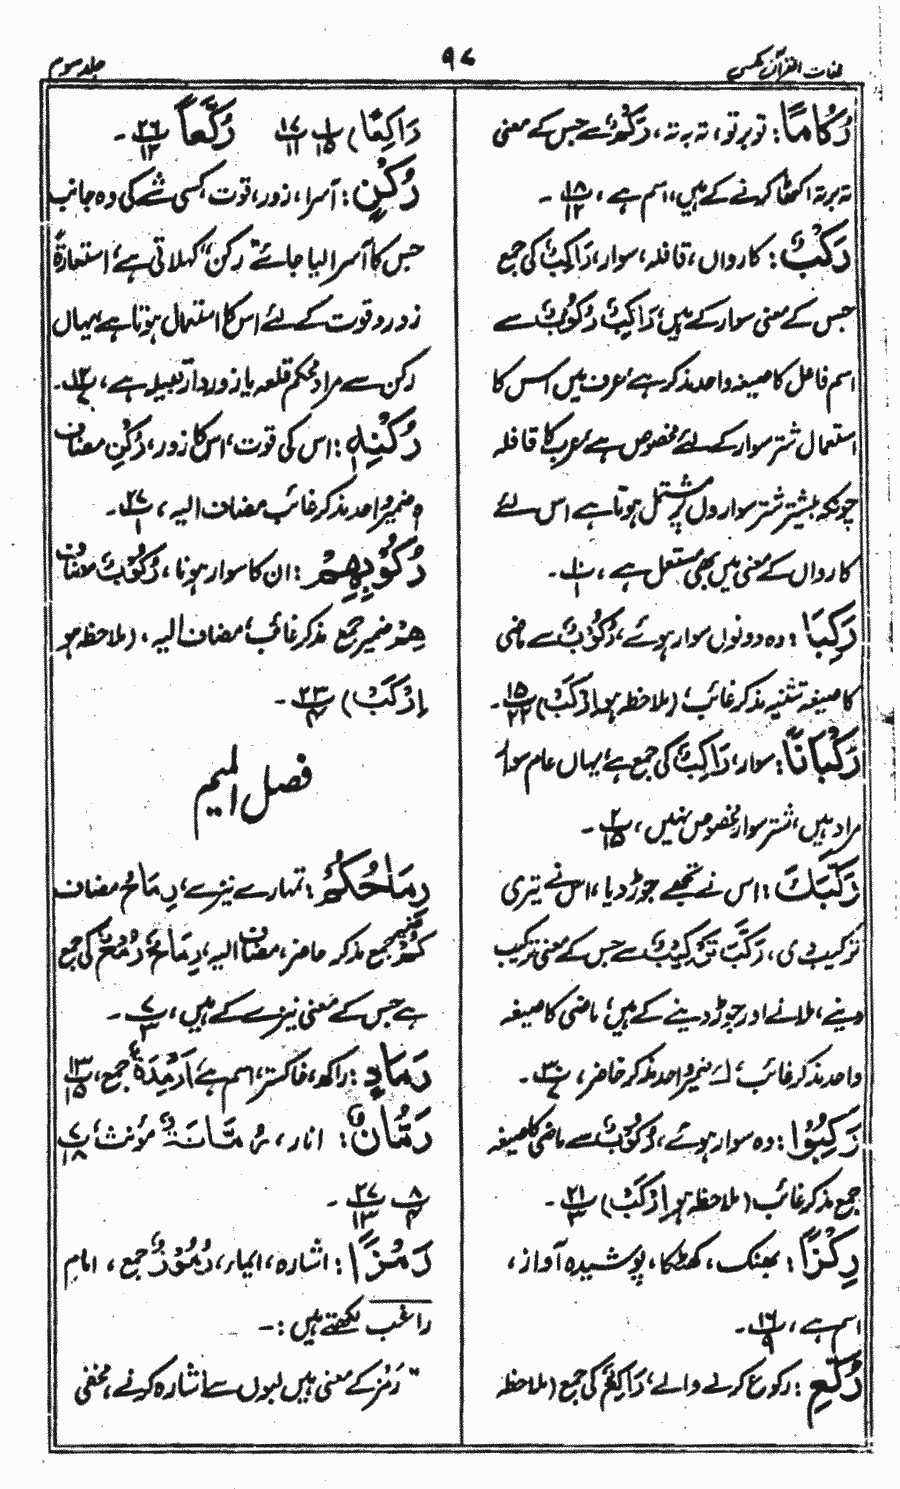 لغات القرآن مکمل
۹۷
جلد سوم
رُكَامًا: تو بر تو، تہ بہ تہ، رَكْمٌ سے جس کے معنی
تہ برتہ اکٹھا کرنے کے ہیں، اسم ہے، ۱۸/۱۲ ۔
رَكْبٌ: کارواں، قافلہ، سوار، رَاكِبٌ کی جمع
جس کے معنی سوار کے ہیں، رَاكِبٌ رُكُوْبٌ سے
اسم فاعل کا صیغہ واحد مذکر ہے، عرف میں اس کا
استعمال شتر سوار کے لئے مخصوص ہے، عرب کا قافلہ
چونکہ بیشتر شتر سواروں پر مشتمل ہوتا ہے اس لئے
کارواں کے معنی میں بھی مستعمل ہے، ۱۰/۱ ۔
رَكِبَا: وہ دونوں سوار ہوئے، رُكُوْبٌ سے ماضی
کا صیغہ تثنیہ مذکر غائب، (ملاحظہ ہو اِرْكَبْ) ۱۵/۲۲ ۔
رُكْبَانًا: سوار، رَاكِبٌ کی جمع ہے، یہاں عام سوار
مراد ہیں، شتر سوار مخصوص نہیں، ۲/۱۵ ۔
رَكَّبَكَ: اس نے تجھے جوڑ دیا، اس نے تیری
ترکیب دی، رَكَّبَ تَرْكِيْبٌ سے جس کے معنی ترکیب
دینے، ملانے اور جوڑ دینے کے ہیں، ماضی کا صیغہ
واحد مذکر غائب، كَ ضمیر واحد مذکر حاضر، ۳۰/۷ ۔
رَكِبُوْا: وہ سوار ہوئے، رُكُوْبٌ سے ماضی کا صیغہ
جمع مذکر غائب (ملاحظہ ہو اِرْكَبْ) ۲۱/۳ ۔
رِكْزًا: بھنک، کھٹکا، پوشیدہ آواز،
اسم ہے، ۱۶/۹ ۔
رُكَّعِ: رکوع کرنے والے، رَاكِعٌ کی جمع (ملاحظہ
رَاكِعًا) ۱/۱۵ ۱۷/۱۱ رُكَّعًا ۲۶/۱۲ ۔
رُكْنٍ: آسرا، زور، قوت، کسی شے کی وہ جانب
جس کا آسرا لیا جائے "رکن" کہلاتی ہے، استعارۃً
زور و قوت کے لئے اس کا استعمال ہوتا ہے، یہاں
رکن سے مراد محکم قلعہ یا زوردار قبیلہ ہے، ۱۲/۷ ۔
رُكْنِهٖ: اس کی قوت، اس کا زور، رُكْنِ مضاف
ہ ضمیر واحد مذکر غائب مضاف الیہ، ۲۷/۱ ۔
رُكُوْبِهِمْ: ان کا سوار ہونا، رُكُوْبٌ مضاف
هِمْ ضمیر جمع مذکر غائب، مضاف الیہ، (ملاحظہ ہو
اِرْكَبْ) ۲۳/۴ ۔
فصل المیم
رِمَاحُكُمْ: تمہارے نیزے، رِمَاحُ مضاف
كُمْ ضمیر جمع مذکر حاضر، مضاف الیہ، رِمَاحٌ، رُمْحٌ کی جمع
ہے جس کے معنی نیزے کے ہیں، ۷/۳ ۔
رَمَادٍ: راکھ، خاکستر، اسم ہے، اَرْمِدَةٌ جمع، ۱۳/۱۵
رُمَّانٌ: انار، رُمَّانَةٌ مؤنث، ۷/۱۸
۸/۴ ۲۷/۱۳ ۔
رَمْزًا: اشارہ، ایماء، رُمُوْزٌ جمع، امام
راغب لکھتے ہیں :-
"رَمْز کے معنی ہیں لبوں سے اشارہ کرنے، مخفی